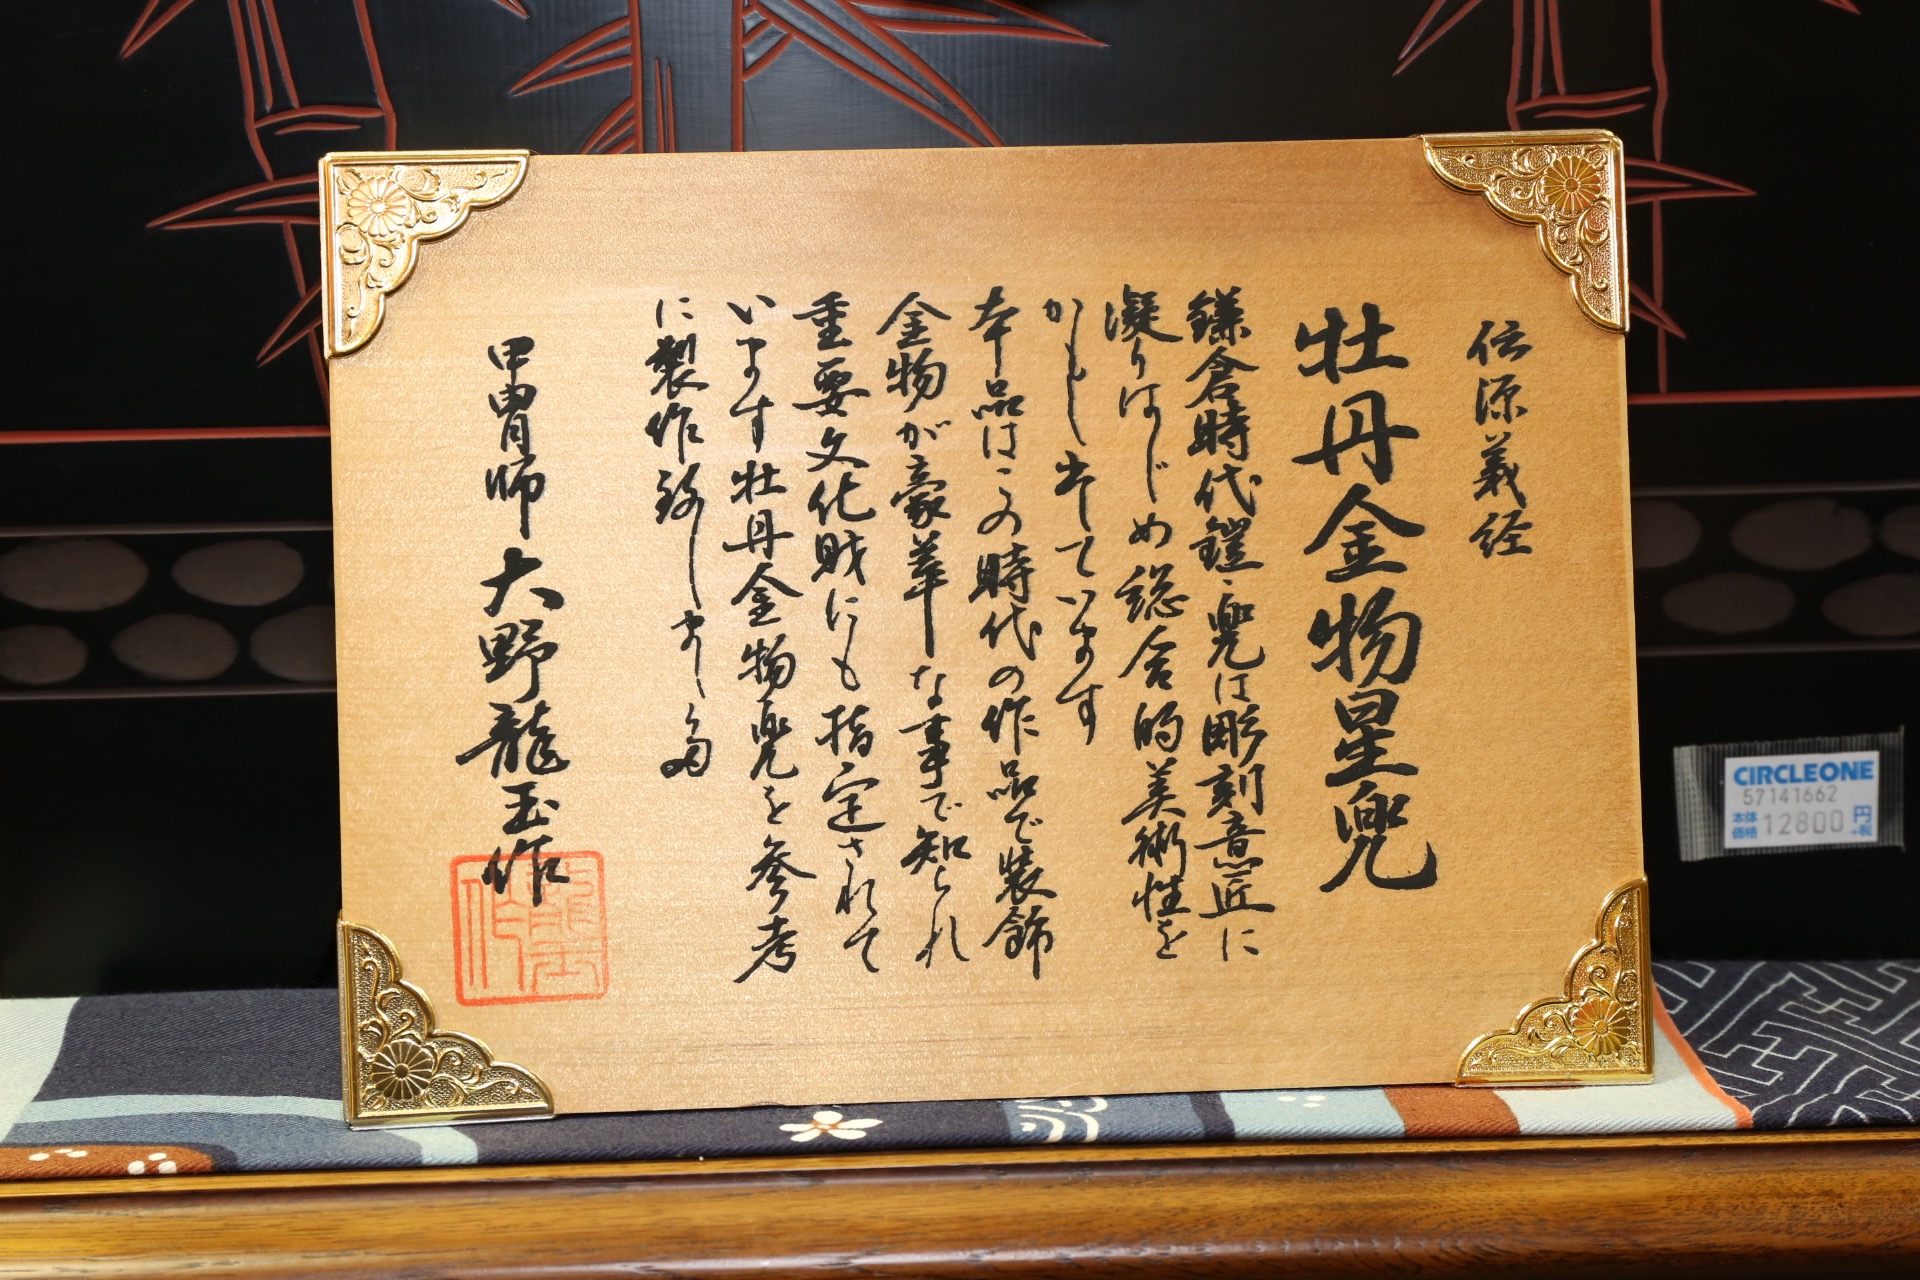 伝源義経
牡丹金物星兜
鎌倉時代鎧・兜は彫刻意匠に
凝りはじめ総合的美術性を
かもし出ています
本品はこの時代の作品で装飾
金物が豪華な事で知られ
重要文化財にも指定されて
います牡丹金物兜を参考
に製作致しました
甲冑師 大野龍玉作
CIRCLEONE
57141662
本体価格 12800円+税